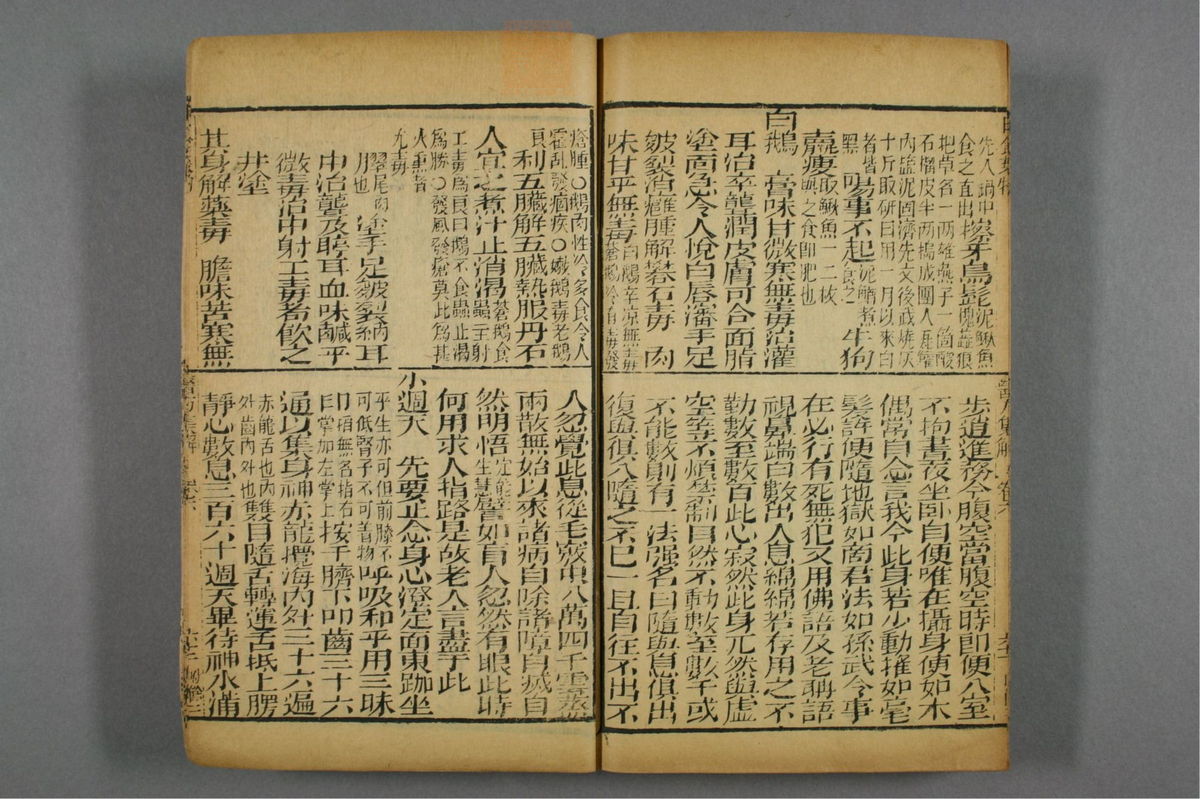 先入鍋中揩牙烏髭泥鰍魚
食之直出槐蘂狼
把草各一兩雄燕子一箇酸
石榴皮半兩搗成團入瓦罐
內鹽泥固濟先文後武燒灰
十斤取研日用一月以來白
者皆黑陽事不起泥鰍煮食之牛狗
羸瘦取鰍魚一二枚之食即肥也
白鵝 膏味甘微寒無毒治灌
耳治卒聾潤皮膚可合面脂
塗面急令人悅白唇瀋手足
皴裂消癰腫解礜石毒 肉
味甘平無毒白鵝辛涼無毒蒼鵝冷有毒發
瘡腫○鵝肉性冷多食令人
霍亂發痼疾○嫩鵝毒老鵝
良利五臟解五臟熱服丹石
人宜之煮汁止消渴蒼鵝食蟲主射
工毒為良白鵝不食蟲止渴
為勝○發風發瘡莫此為甚
火熏者
尤毒
臎尾肉也 塗手足皴裂納耳
中治聾及聤耳 血味鹹平
微毒治中射工毒者飲之
并塗
其身解藥毒 膽味苦寒無
步道進務令腹空當腹空時即便入室
不拘晝夜坐臥自便唯在攝身使如木
偶常自念言我今此身若少動搖如毫
髮許便墮地獄如商君法如孫武令事
在必行有死無犯又用佛語及老聃語
視鼻端白數出入息綿綿若存用之不
勤數至數百此心寂然此身兀然與虛
空等不煩禁制自然不動數至數千或
不能數則有一法強名曰隨與息俱出
復與俱入隨之不已一旦自住不出不
入忽覺此息從毛竅中八萬四千雲蒸
雨散無始以來諸病自除諸障自滅自
然明悟定能生慧譬如盲人忽然有眼此時
何用求人指路是故老人言盡于此
小週天 先要止念身心澄定面東跏坐
平坐亦可但前膝不可低腎子不可着物呼吸和平用三昧
印掐無名指右掌加左掌上按于臍下叩齒三十六
通以集身神赤龍攪海內外三十六遍
赤龍舌也內外齒內外也雙目隨舌轉運舌抵上腭
靜心數息三百六十週天畢待神水滿